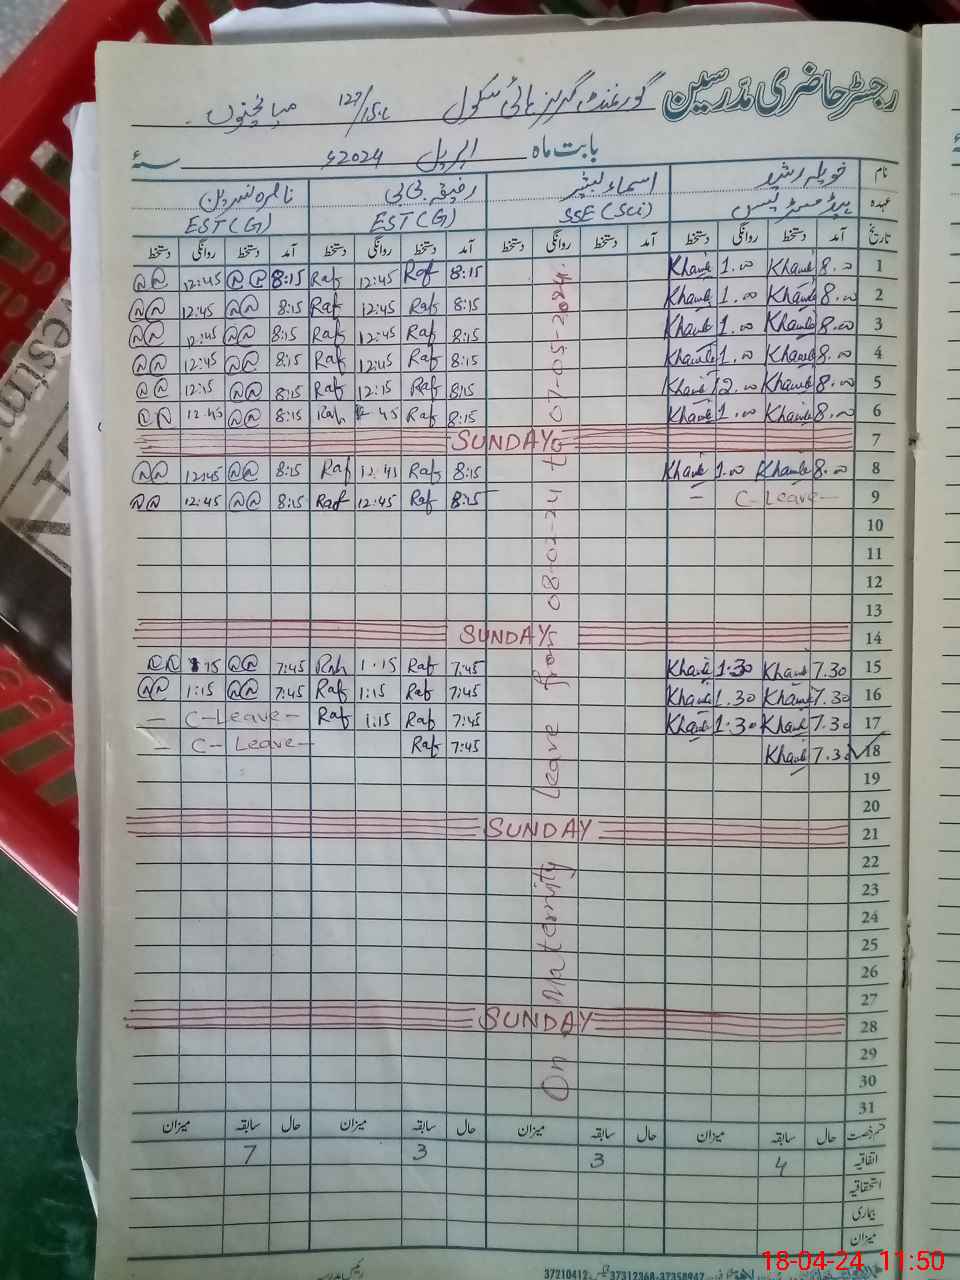 رجسٹر حاضری مدرسین گورنمنٹ گرلز ہائی سکول 127/15.L میانچنوں
بابت ماہ اپریل 2024ء سنہٴ
نام اسماء بشیر رفیقہ بی بی
عہدہ ہیڈ مسٹریس SSE (Sci) EST (G) EST (G)
تاریخ آمد دستخط روانگی دستخط آمد دستخط روانگی دستخط آمد دستخط روانگی دستخط آمد دستخط روانگی دستخط
1 8.00 1.00 8:15 Raf 12:45 Raf 8:15 12:45
2 8.00 1.00 8:15 Raf 12:45 Raf 8:15 12:45
3 8.00 1.00 8:15 Raf 12:45 Raf 8:15 12:45
4 8.00 1.00 8:15 Raf 12:45 Raf 8:15 12:45
5 8.00 12.00 8:15 Raf 12:15 Raf 8:15 12:15
6 8.00 1.00 8:15 Raf 12:45 8:15 12:45
7 SUNDAY
8 8.00 1.00 8:15 Raf 12:45 Raf 8:15 12:45
9 – C-Leave – 8:15 Raf 12:45 Raf 8:15 12:45
10
11
12
13
14 SUNDAY
15 7.30 1.30 7:45 Raf 1.15 7:45 1:15
16 7.30 1.30 7:45 Raf 1:15 Raf 7:45 1:15
17 7.30 1.30 7:45 Raf 1:15 Raf – C-Leave –
18 7.30 7:45 Raf – C-Leave –
19
20
21 SUNDAY
22
23
24
25
26
27
28 SUNDAY
29
30
31
On Maternity Leave from 08-02-24 to 07-05-2024.
قسم رخصت حال سابقہ میزان حال سابقہ میزان حال سابقہ میزان حال سابقہ میزان
اتفاقیہ 4 3 3 7
استحقاقیہ
بیماری
میزان
37210412 37312368-37358947
18-04-24 11:50